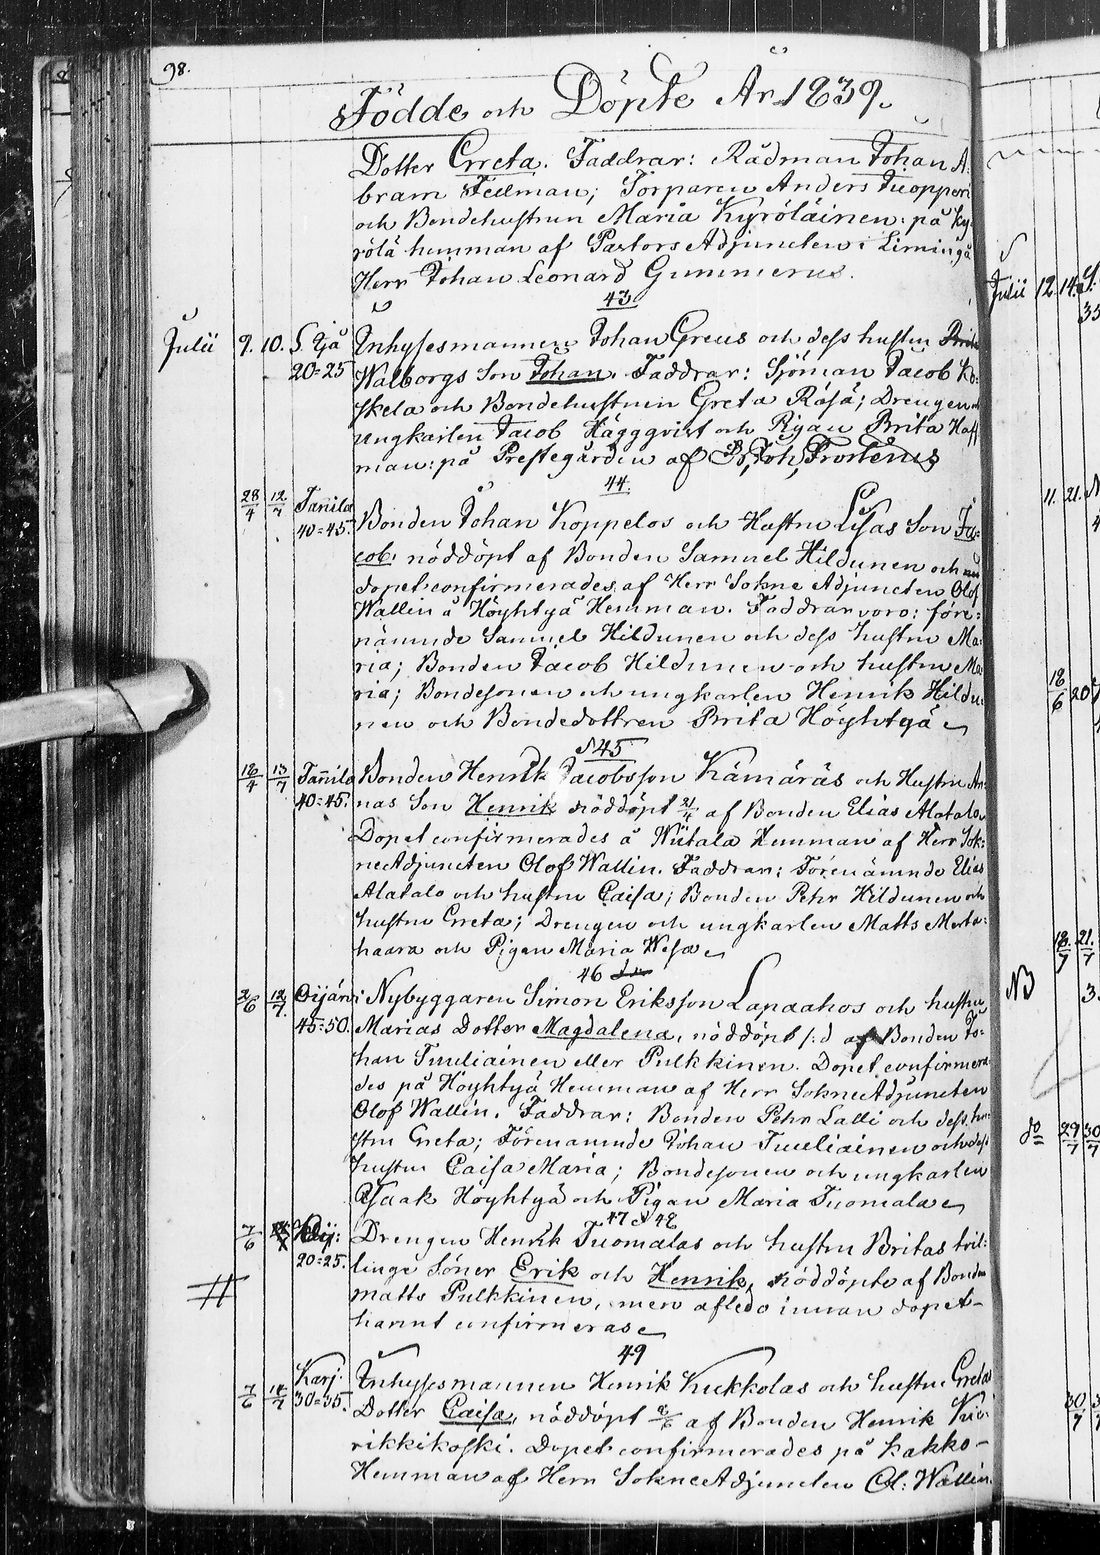 98.
Födde och Döpte År 1839.
Dotter Greta. Faddrar: Rådman Johan A:
bram Fellman; Torparen Anders Tuopperi
och Bondehustrun Maria Kyröläinen: på Ky:
rölä hemman af Pastors Adjuncten i Limingå
Herr Johan Leonard Gummerus.
43.
Julii 9. 10. S. Ijå Inhysesmannen Johan Greus och dess hustru Brita
20=25 Walborgs Son Johan. Faddrar: Sjöman Jacob Ko:
skela och Bondehustrun Greta Räsä; Drengen och
ungkarlen Jacob Häggqvist och Pigan Brita Hoff
man: på Prestegården af Joh. Frosterus
44.
28/4 12/7 Tannila Bonden Johan Koppelos och Hustru Lisas Son Ja:
40=45. cob, nöddöpt af Bonden Samuel Hildunen och
dopet confirmerades af Herr Sokne Adjuncten Olof
Wallin å Höyhtyä Hemman. Faddrar voro: före:
nämnde Samuel Hildunen och dess hustru Ma:
ria; Bonden Jacob Hildunen och hustru Ma
ria; Bondesonen och ungkarlen Henrik Hildu:
nen och Bondedottren Brita Höyhtyä
N 45
18/4 13/7 Tannila Bonden Henrik Jacobsson Kämäräs och Hustru An:
40=45. nas Son Henrik nöddöpt 21/4 af Bonden Elias Alatalo.
Dopet confirmerades å Wiitala Hemman af Herr Sok:
neAdjuncten Olof Wallin. Faddrar: Förenämnde Elias
Alatalo och hustru Caisa; Bonden Pehr Hildunen och
hustru Greta; Drengen och ungkarlen Matts Merta:
haara och Pigan Maria Wesa
46
2/6 12/7. Oijärvi Nybyggaren Simon Eriksson Lapaahos och hustru
45=50. Marias Dotter Magdalena, nöddöpt s:d af Bonden Jo:
han Tuuliainen eller Pulkkinen. Dopet confirmera
des på Höyhtyä Hemman af Herr SokneAdjuncten
Olof Wallin. Faddrar: Bonden Pehr Lalli och dess hu:
stru Greta; Förenämnde Johan Tuuliainen och dess
hustru Caisa Maria; Bondesonen och ungkarlen
Isaak Höyhtyä och Pigan Maria Tuomala
47 & 48
7/6 Oij: Drengen Henrik Tuomalas och hustru Britas tvil:
20=25. linge Söner Erik och Henrik, nöddöpte af Bonden
Matts Pulkkinen, men afledo innan dopet
hunnit confirmeras
49
Karj. Inhysesmannen Henrik Kukkolas och hustru Gretas
7/6 14/7 30=35. Dotter Caisa, nöddöpt 8/6 af Bonden Henrik Kio:
rikkikoski. Dopet confirmerades på Kakko
Hemman af Herr SokneAdjuncten Ol: Wallin.
Julii 12. 14.
11. 21.
18/6 20
18/7 21/7
NB
do 29/7 30/7
30/7